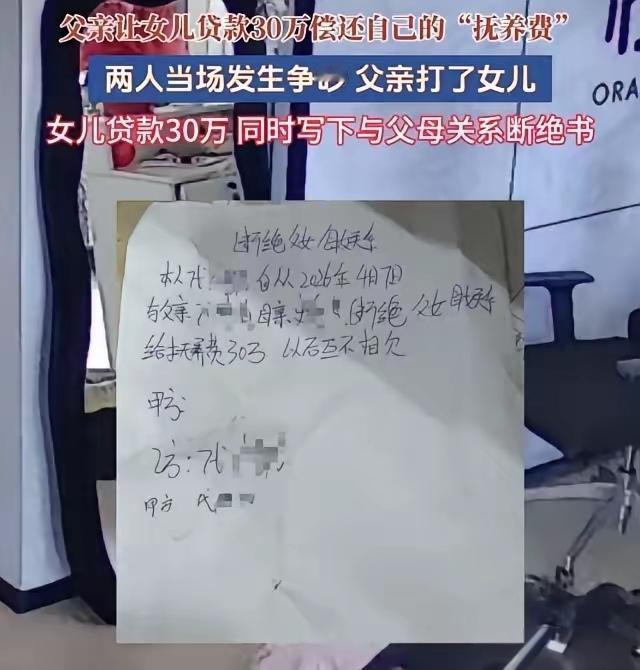 父亲让女儿贷款30万偿还自己的“抚养费”
两人当场发生争吵 父亲打了女儿
女儿贷款30万 同时写下与父母关系断绝书
ORA
断绝父女母女关系
本人代 自从2026年4月7日
与父亲 母亲 断绝父女母女关系
给抚养费30万 以后互不相欠
甲方
乙方：代
甲方 代